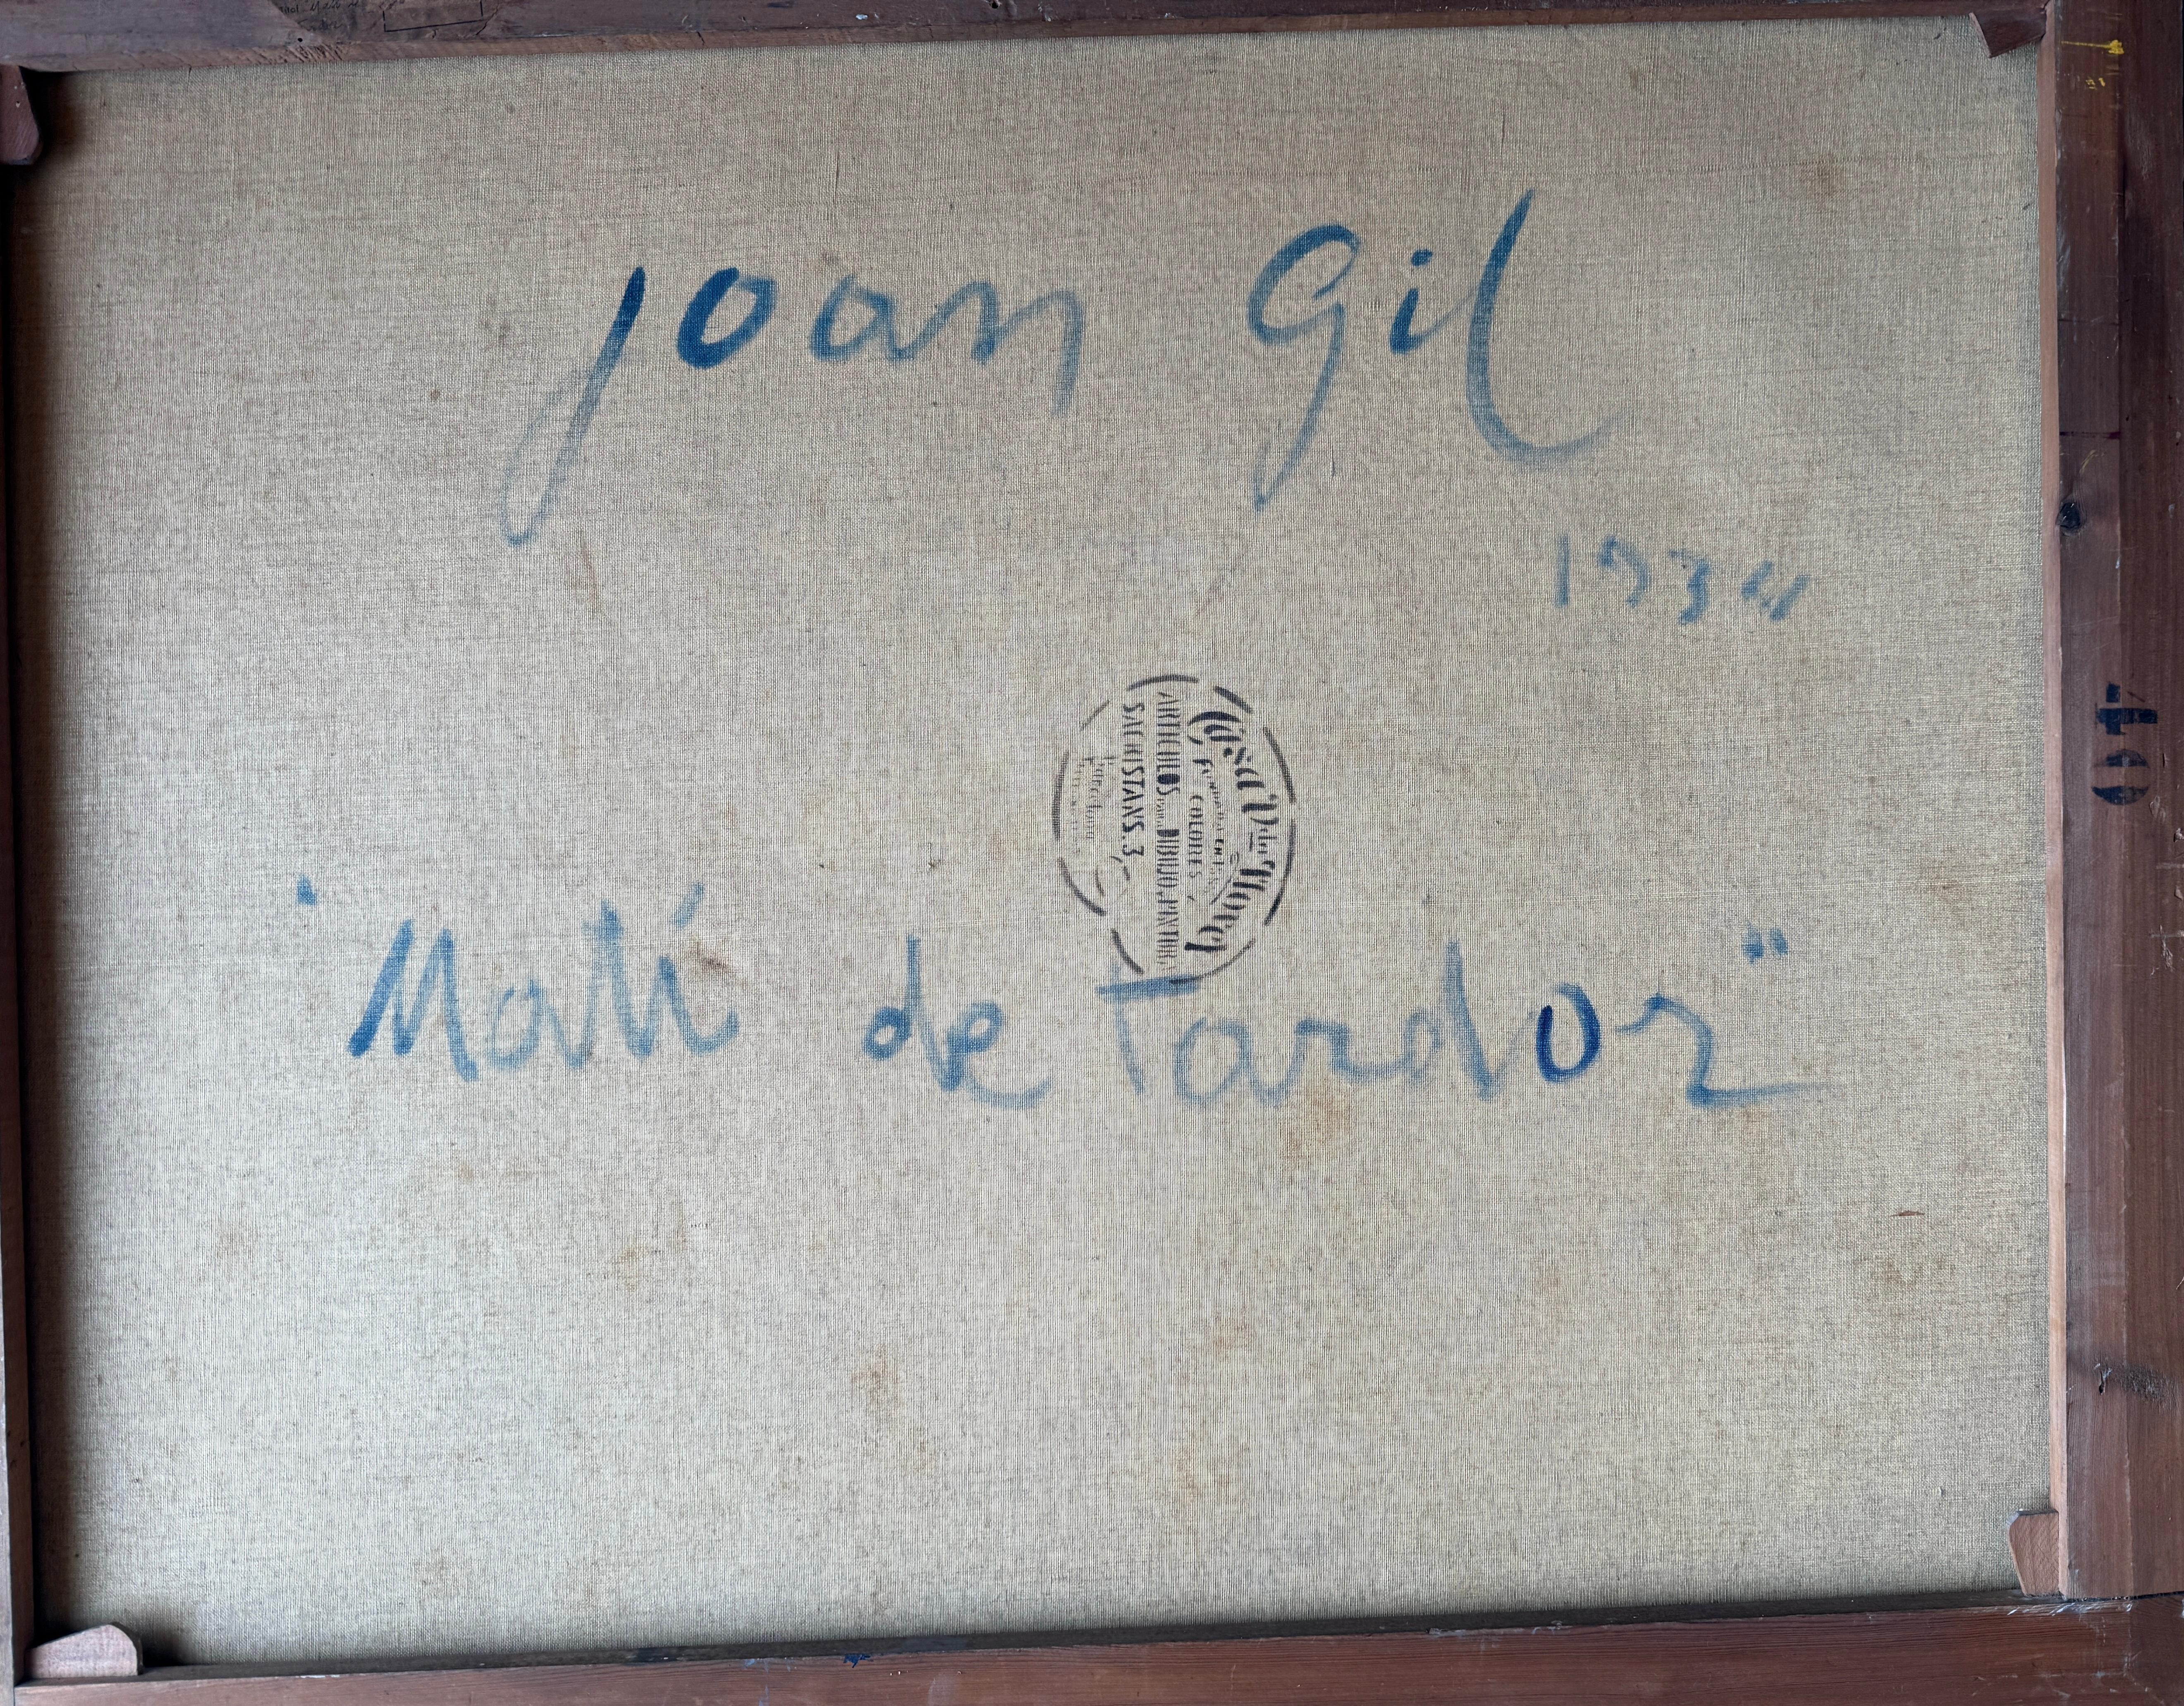 Joan Gil
1934
"Matí de Tardor"
Casa Vda Teixidor
COLORES
ARTICULOS PARA DIBUJO, PINTURA
SACRISTANS. 3
Barcelona
40